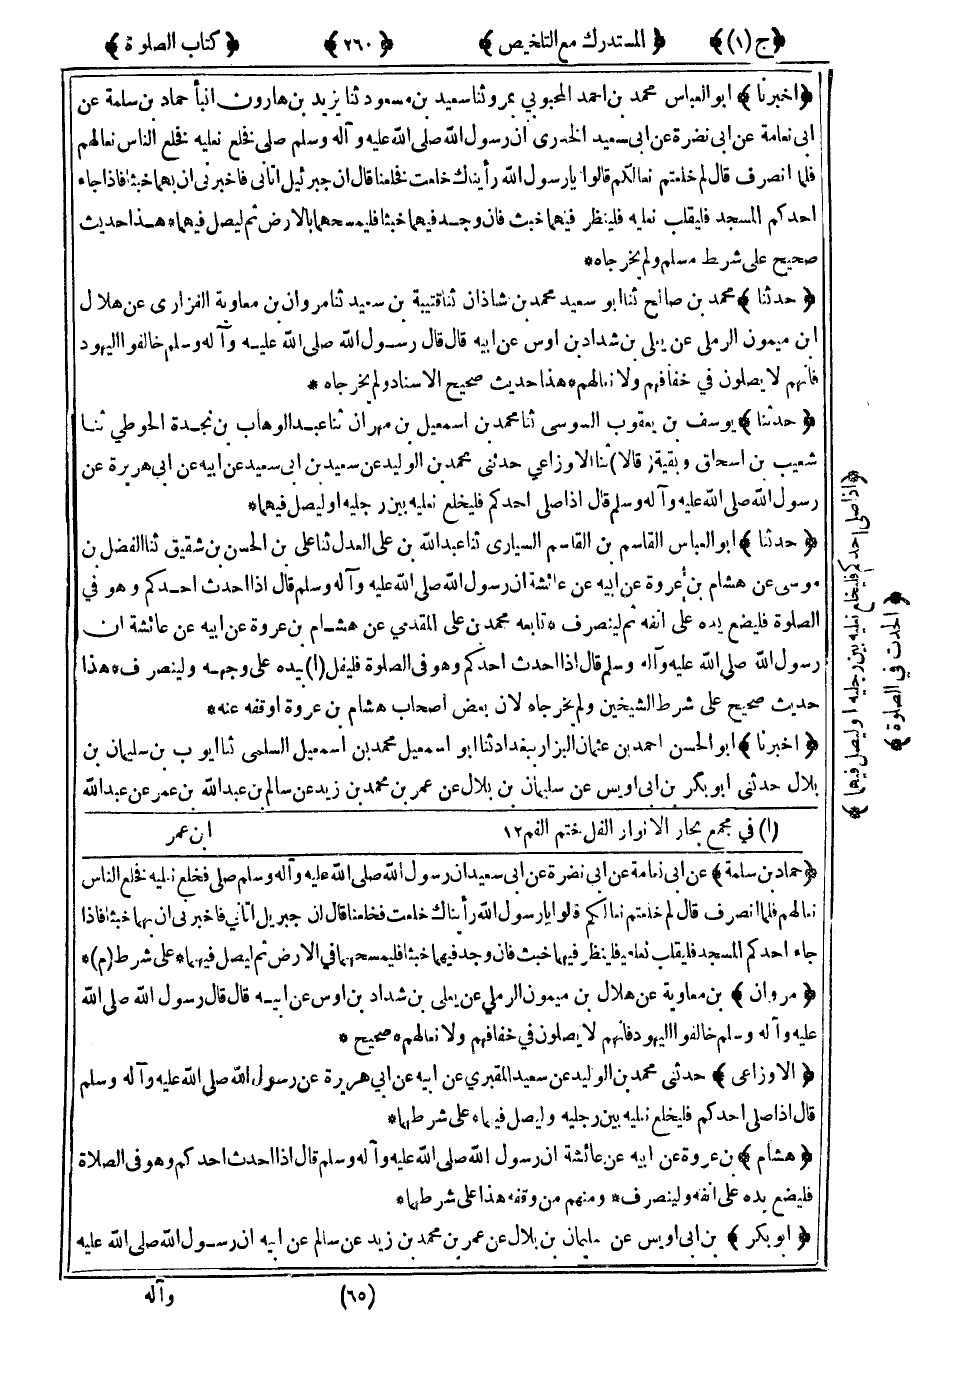 ﴿ج (١)﴾ ﴿المستدرك مع التلخيص﴾ ﴿٢٦٠﴾ ﴿كتاب الصلوة﴾
﴿اخبرنا﴾ ابو العباس محمد بن احمد المحبوبي بمرو ثنا سعيد بن مسعود ثنا يزيد بن هارون انبأ حماد بن سلمة عن
ابى نعامة عن ابى نضرة عن ابى سعيد الخدرى ان رسول الله صلى الله عليه وآله وسلم صلى فخلع نعليه فخلع الناس نعالهم
فلما انصرف قال لم خلعتم نعالكم قالوا يارسول الله رأيناك خلعت فخلعنا قال ان جبرئيل اتانى فاخبرنى ان بهما خبثا فاذا جاء
احدكم المسجد فليقلب نعليه فلينظر فيهما خبث فان وجد فيهما خبثا فليمسحهما بالارض ثم ليصل فيهما * هذا حديث
صحيح على شرط مسلم ولم يخرجاه *
﴿حدثنا﴾ محمد بن صالح ثنا ابو سعيد محمد بن شاذان ثنا قتيبة بن سعيد ثنا مروان بن معاوية الفزارى عن هلال
ابن ميمون الرملى عن يعلى بن شداد بن اوس عن ابيه قال قال رسول الله صلى الله عليه وآله وسلم خالفوا اليهود
فانهم لا يصلون في خفافهم ولا نعالهم * هذا حديث صحيح الاسناد ولم يخرجاه *
﴿حدثنا﴾ يوسف بن يعقوب السوسى ثنا محمد بن اسمعيل بن مهران ثنا عبد الوهاب بن نجدة الحوطي ثنا
شعيب بن اسحاق وبقية (قالا) ثنا الاوزاعي حدثنى محمد بن الوليد عن سعيد بن ابى سعيد عن ابيه عن ابي هريرة عن
رسول الله صلى الله عليه وآله وسلم قال اذا صلى احدكم فليخلع نعليه بين رجليه او ليصل فيهما *
﴿حدثنا﴾ ابو العباس القاسم بن القاسم السيارى ثنا عبد الله بن على العدل ثنا على بن الحسن بن شقيق ثنا الفضل بن
موسى عن هشام بن عروة عن ابيه عن عائشة ان رسول الله صلى الله عليه وآله وسلم قال اذا احدث احدكم وهو في
الصلوة فليضع يده على انفه ثم لينصرف * تابعه محمد بن على المقدمي عن هشام بن عروة عن ابيه عن عائشة ان
رسول الله صلى الله عليه وآله وسلم قال اذا احدث احدكم وهو فى الصلوة فليفل (١) بيده على وجهه ولينصرف * هذا
حديث صحيح على شرط الشيخين ولم يخرجاه لان بعض أصحاب هشام بن عروة اوقفه عنه *
﴿اخبرنا﴾ ابو الحسن احمد بن عثمان البزار ببغداد ثنا ابو اسمعيل محمد بن اسمعيل السلمى ثنا ايوب بن سليمان بن
بلال حدثنى ابو بكر بن ابى اويس عن سليمان بن بلال عن عمر بن محمد بن زيد عن سالم بن عبد الله بن عمر عن عبد الله
(١) في مجمع بحار الانوار الفل ختم الفم ١٢ ابن عمر
﴿حماد بن سلمة﴾ عن ابى نعامة عن ابى نضرة عن ابى سعيد ان رسول الله صلى الله عليه وآله وسلم صلى فخلع نعليه فخلع الناس
نعالهم فلما انصرف قال لم خلعتم نعالكم قالوا يارسول الله رأيناك خلعت فخلعنا قال ان جبريل اتانى فاخبرنى ان بهما خبثا فاذا
جاء احدكم المسجد فليقلب نعليه فلينظر فيهما خبث فان وجد فيهما خبثا فليمسحهما في الارض ثم ليصل فيهما * على شرط (م) *
﴿مروان﴾ بن معاوية عن هلال بن ميمون الرملي عن يعلى بن شداد بن اوس عن ابيه قال قال رسول الله صلى الله
عليه وآله وسلم خالفوا اليهود فانهم لا يصلون في خفافهم ولا نعالهم * صحيح *
﴿الاوزاعى﴾ حدثنى محمد بن الوليد عن سعيد المقبري عن ابيه عن ابي هريرة عن رسول الله صلى الله عليه وآله وسلم
قال اذا صلى احدكم فليخلع نعليه بين رجليه وليصل فيهما * على شرطهما *
﴿هشام﴾ بن عروة عن ابيه عن عائشة ان رسول الله صلى الله عليه وآله وسلم قال اذا احدث احدكم وهو فى الصلاة
فليضع يده على انفه ولينصرف * ومنهم من وقفه هذا على شرطهما *
﴿ابو بكر﴾ بن ابى اويس عن سليمان بن بلال عن عمر بن محمد بن زيد عن سالم عن ابيه ان رسول الله صلى الله عليه
(٦٥) وآله
﴿اذا صلى احدكم فليخلع نعليه بين رجليه او ليصل فيهما﴾
﴿الحدث في الصلوة﴾